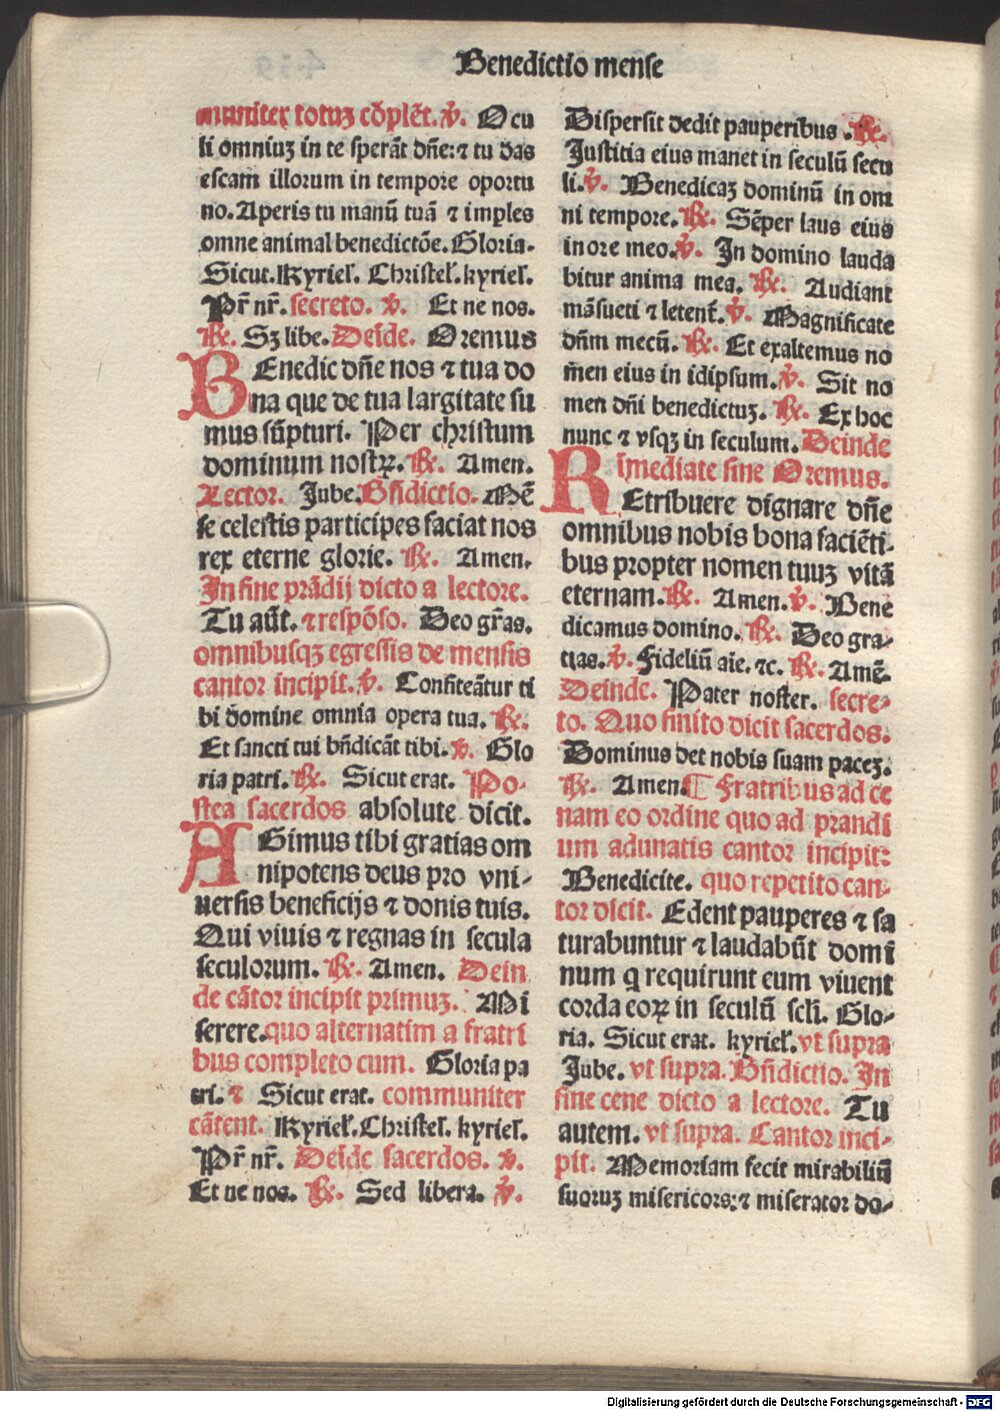 Benedictio mense
muniter totuꝫ cōplēt. ℣. Ocu
li omniuꝫ in te sperāt dn̄e: ⁊ tu das
escam illorum in tempore oportu
no. Aperis tu manū tuā ⁊ imples
omne animal benedictōe. Gloria.
Sicut. Kyriel̄. Christel̄. kyriel̄.
Pr̄ nr̄. secreto. ℣. Et ne nos.
℟. Sꝫ libe. Deīde. Oremus
BEnedic dn̄e nos ⁊ tua do
na que de tua largitate su
mus sūpturi. Per christum
dominum nostrꝝ. ℟. Amen.
Lector. Jube. Bn̄dictio. Mē
se celestis participes faciat nos
rex eterne glorie. ℟. Amen.
In fine prādij dicto a lectore.
Tu aūt. ⁊ respōso. Deo gr̄as.
omnibusqꝫ egressis de mensis
cantor incipit. ℣. Confiteātur ti
bi domine omnia opera tua. ℟.
Et sancti tui bn̄dicāt tibi. ℣. Glo
ria patri. ℟. Sicut erat. Po-
stea sacerdos absolute dicit.
AGimus tibi gratias om
nipotens deus pro vni-
uersis beneficijs ⁊ donis tuis.
Qui viuis ⁊ regnas in secula
seculorum. ℟. Amen. Dein
de cātor incipit primuꝫ. Mi
serere. quo alternatim a fratri
bus completo cum. Gloria pa
tri. ⁊ Sicut erat. communiter
cātent. Kyriel̄. Christel̄. kyriel̄.
Pr̄ nr̄. Deīde sacerdos. ℣.
Et ne nos. ℟. Sed libera. ℣.
Dispersit dedit pauperibus. ℟.
Justitia eius manet in seculū secu
li. ℣. Benedicaꝫ dominū in om
ni tempore. ℟. Sēper laus eius
in ore meo. ℣. In domino lauda
bitur anima mea. ℟. Audiant
māsueti ⁊ letent̄. ℣. Magnificate
dn̄m mecū. ℟. Et exaltemus no
m̄en eius in idipsum. ℣. Sit no
men dn̄i benedictuꝫ. ℟. Ex hoc
nunc ⁊ vsqꝫ in seculum. Deinde
īmediate sine Oremus.
REtribuere dignare dn̄e
omnibus nobis bona faciēti-
bus propter nomen tuuꝫ vitā
eternam. ℟. Amen. ℣. Bene
dicamus domino. ℟. Deo gra-
tias. ℣. Fideliū aīe. ⁊c. ℟. Amē.
Deinde. Pater noster. secre-
to. Quo finito dicit sacerdos.
Dominus det nobis suam paceꝫ.
℟. Amen. ¶ Fratribus ad ce
nam eo ordine quo ad prandi
um adunatis cantor incipit:
Benedicite. quo repetito can-
tor dicit. Edent pauperes ⁊ sa
turabuntur ⁊ laudabūt domi
num q requirunt eum viuent
corda eoꝝ in seculū scl̄i. Glo-
ria. Sicut erat. kyriel̄. vt supra
Jube. vt supra. Bn̄dictio. In
fine cene dicto a lectore. Tu
autem. vt supra. Cantor inci-
pit. Memoriam fecit mirabiliū
suoruꝫ misericors: ⁊ miserator do-
Digitalisierung gefördert durch die Deutsche Forschungsgemeinschaft - DFG